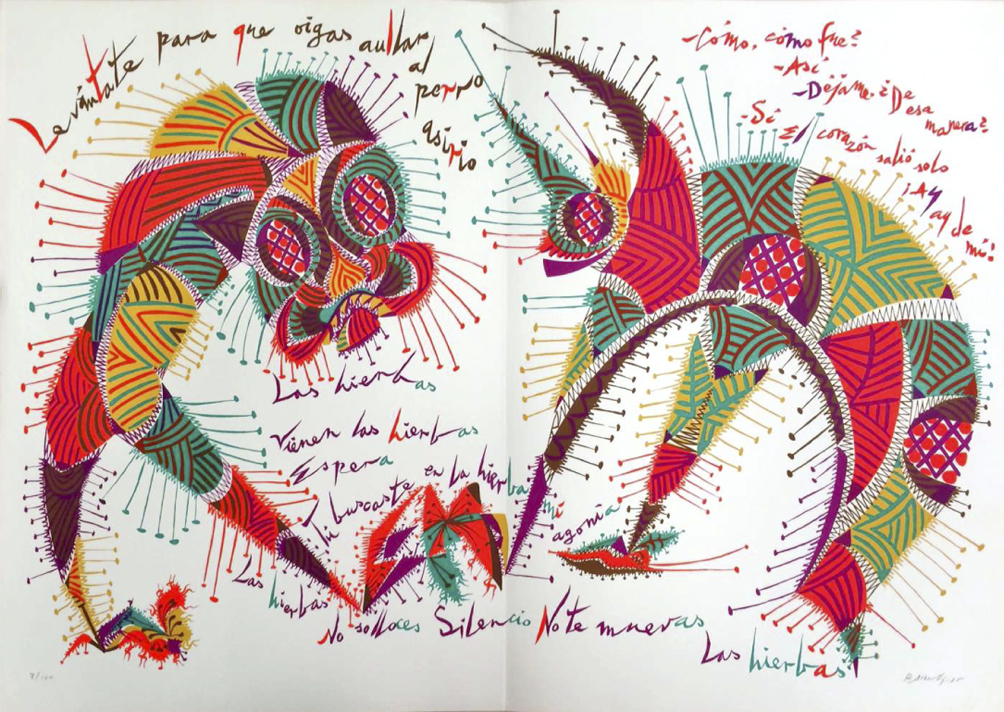 Levántate para que oigas aullar
al
perro
asirio
-Cómo, cómo fue?
-Así
-Déjame. ¿De
esa
manera?
-Sí
El corazón salió solo
¡Ay
ay de
mí!
Las hierbas
Vienen las hierbas
Espera
Tú buscaste en la hierba mi
agonía
Las hierbas
No solloces Silencio No te mueras
Las hierbas